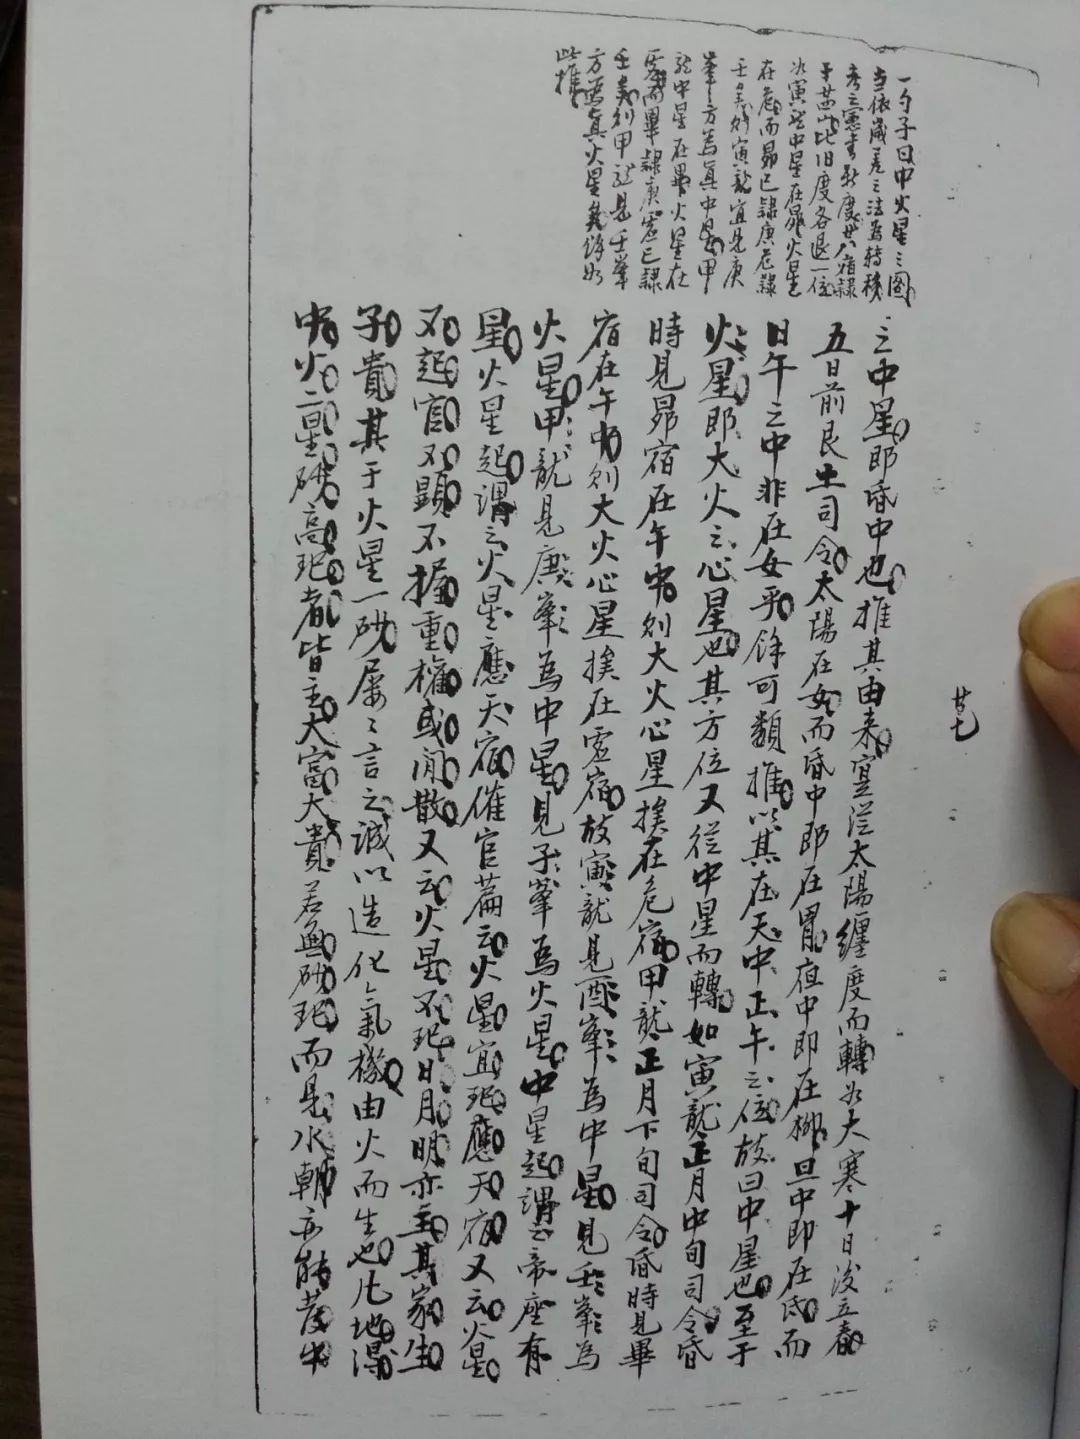 一勺子曰中火星之圖
当依歲差之法為轉移
考之憲書新度廿八宿隸
于茜此旧度各退一位
如寅龍中星在昴火星
在危而昴已隸庚危隸
壬矣則寅龍宜見庚
峯方為真中星甲
龍中星在畢火星在
虛而畢隸庚虛已隸
壬矣則甲龍見壬峯
方為真火星矣餘如
此推
之中星即昏中也推其由来寔從太陽纏度而轉如大寒十日後立春
五日前艮土司令太陽在女而昏中即在胃夜中即在柳旦中即在氐而
日午之中非在女乎餘可類推以其在天中正午之位故曰中星也至于
火星即大火之心星也其方位又從中星而轉如寅龍正月中旬司令昏
時見昴宿在午中則大火心星挨在危宿甲龍正月下旬司令昏時見畢
宿在午中則大火心星挨在虛宿故寅龍見酉峯為中星見壬峯為
火星甲龍見庚峯為中星見子峯為火星中星起謂之帝座有
星火星起謂之火星應天宿催官篇云火星宜圯應天宿又云火星
不起官不顯不握重權或閒散又云火星不圯日月明亦主其家生
子貴其于火星一砂屡之言之誠以造化氣機由火而生也凡地得
中火二星砂高圯者皆主大富大貴若無砂圯而見水朝亦能發牛
廿七